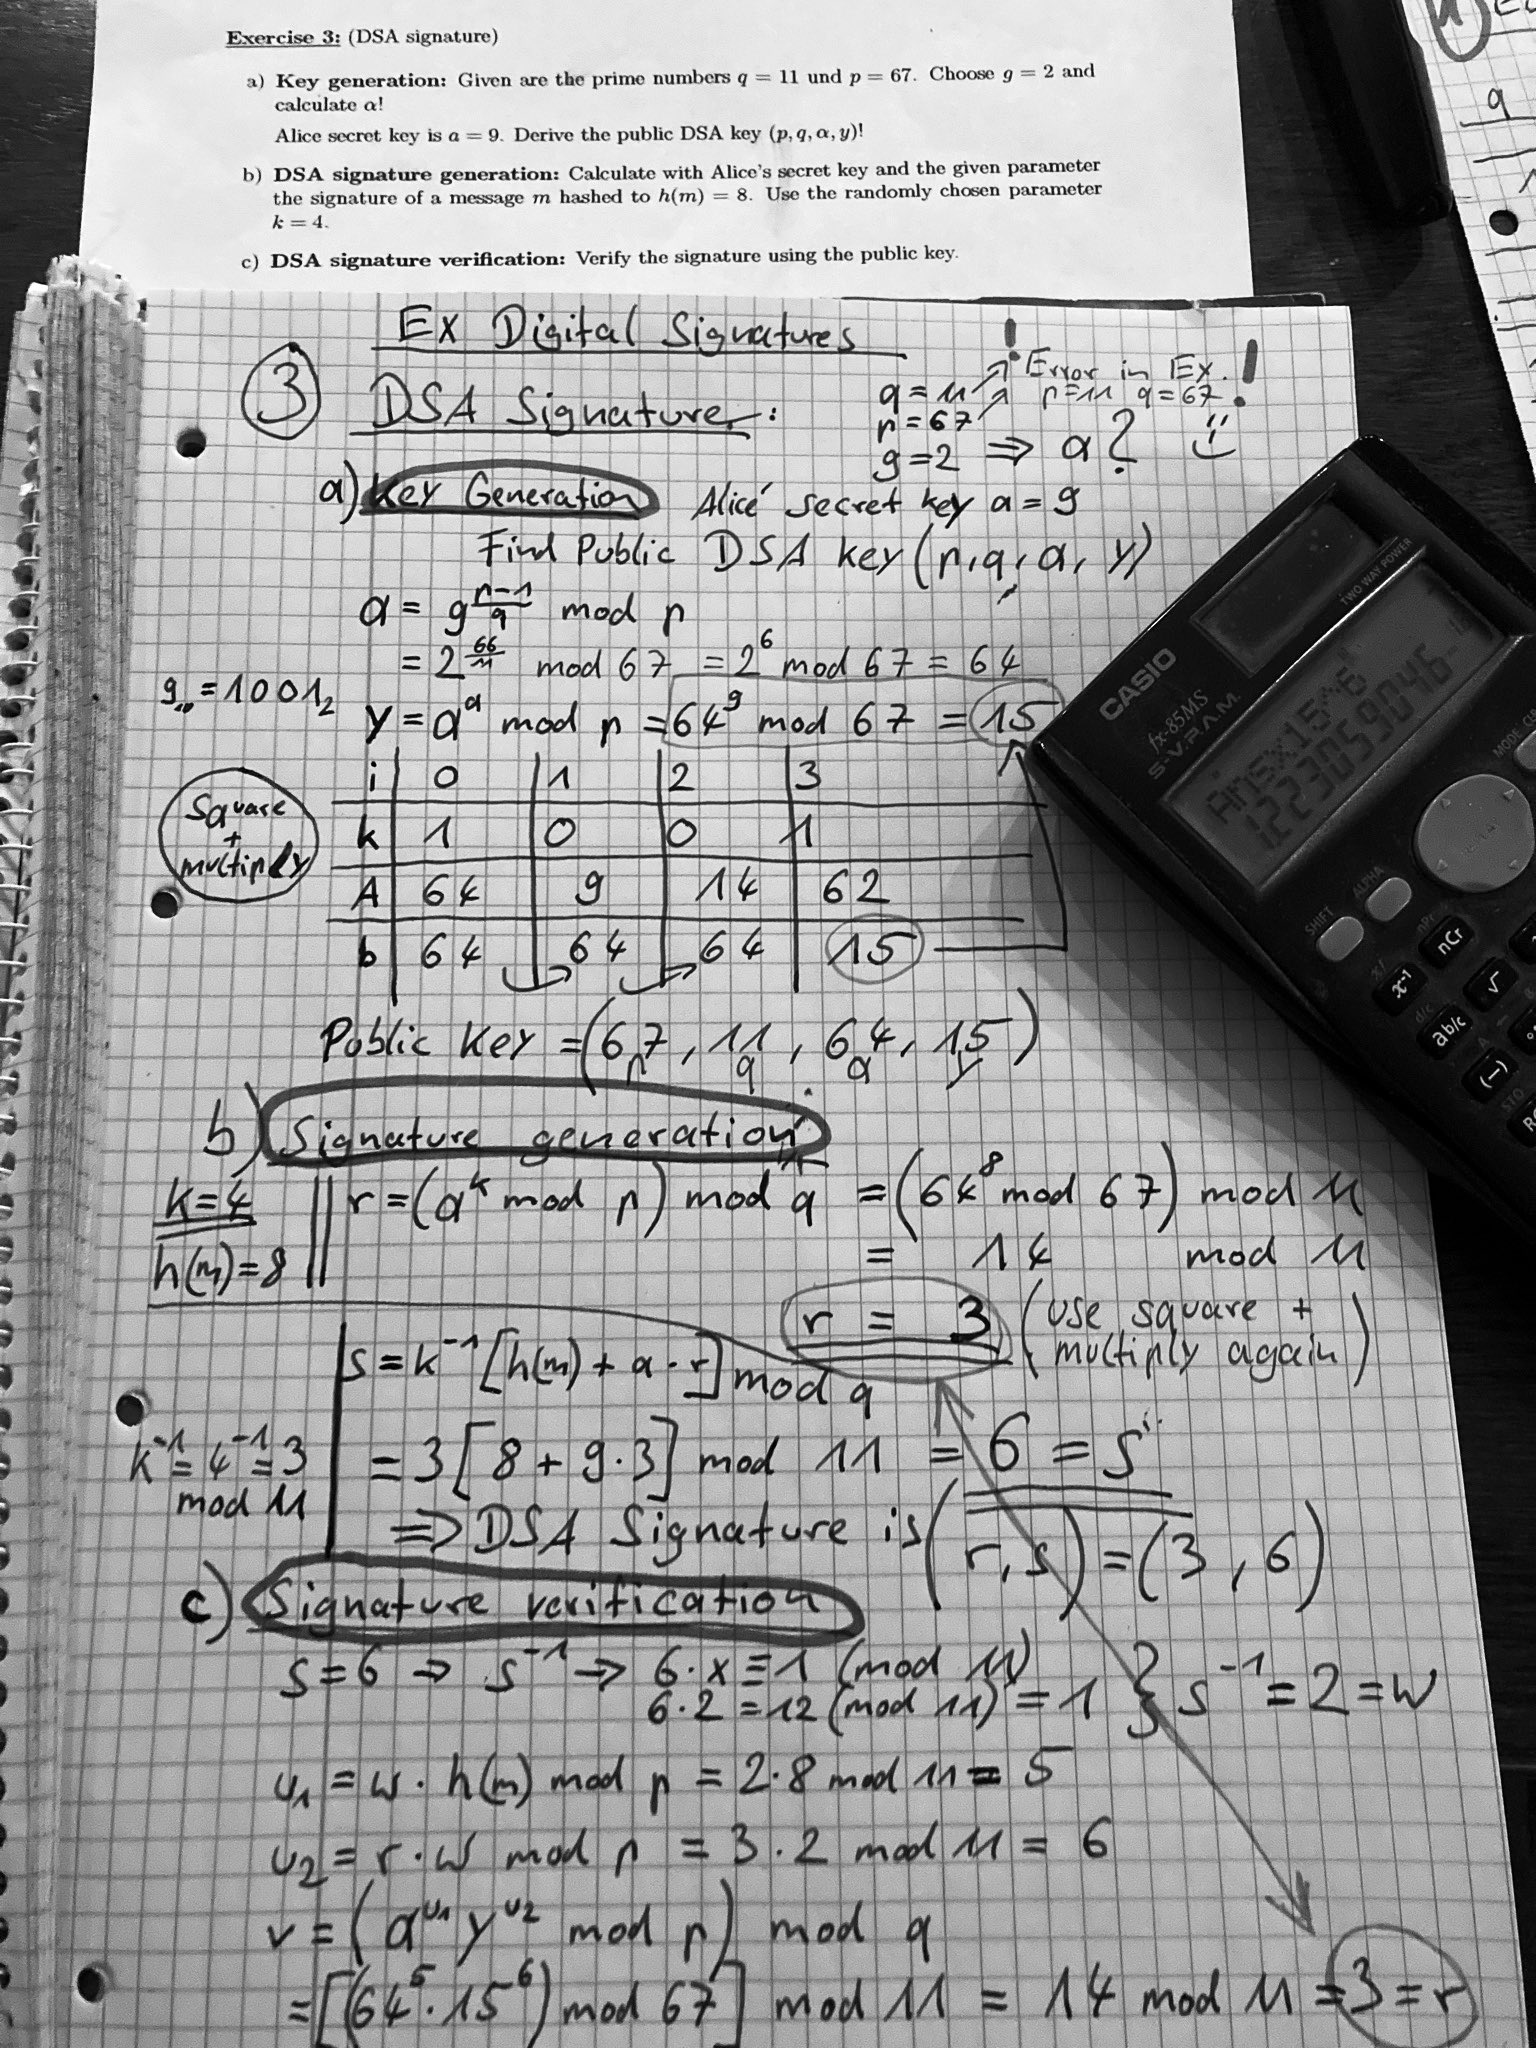 Exercise 3: (DSA signature)
a) Key generation: Given are the prime numbers q = 11 und p = 67. Choose g = 2 and
calculate α!
Alice secret key is a = 9. Derive the public DSA key (p, q, α, y)!
b) DSA signature generation: Calculate with Alice's secret key and the given parameter
the signature of a message m hashed to h(m) = 8. Use the randomly chosen parameter
k = 4.
c) DSA signature verification: Verify the signature using the public key.
Ex Digital Signatures
3 DSA Signature:
q = 11
p = 67
g = 2 ⇒ α? ☺
! Error in Ex. !
p=11 q=67
a) Key Generation Alice' secret key a = 9
Find Public DSA key (p, q, α, y)
α = g^((p-1)/q) mod p
= 2^(66/11) mod 67 = 2^6 mod 67 = 64
9₁₀ = 1001₂
y = α^a mod p = 64^9 mod 67 = 15
Square + multiply
i | 0 | 1 | 2 | 3
k | 1 | 0 | 0 | 1
A | 64 | 9 | 14 | 62
b | 64 | 64 | 64 | 15
Public Key = (67, 11, 64, 15)
p q α y
b) Signature generation
k=4
h(m)=8
r = (α^k mod p) mod q = (64^8 mod 67) mod 11
= 14 mod 11
r = 3 (use square + multiply again)
s = k^-1 [h(m) + a · r] mod q
k^-1 = 4^-1 = 3 mod 11
= 3 [8 + 9·3] mod 11 = 6 = s
⇒ DSA Signature is (r, s) = (3, 6)
c) Signature verification
s = 6 ⇒ s^-1 ⇒ 6 · x ≡ 1 (mod 11)
6 · 2 = 12 (mod 11) = 1 } s^-1 = 2 = w
u₁ = w · h(m) mod p = 2·8 mod 11 = 5
u₂ = r · w mod p = 3 · 2 mod 11 = 6
v = (α^u₁ y^u₂ mod p) mod q
= [(64^5 · 15^6) mod 67] mod 11 = 14 mod 11 = 3 = r
CASIO
fx-85MS
S-V.P.A.M.
TWO WAY POWER
Ans×15^6
SHIFT
ALPHA
MODE
nCr
x⁻¹
ab/c
√
(−)